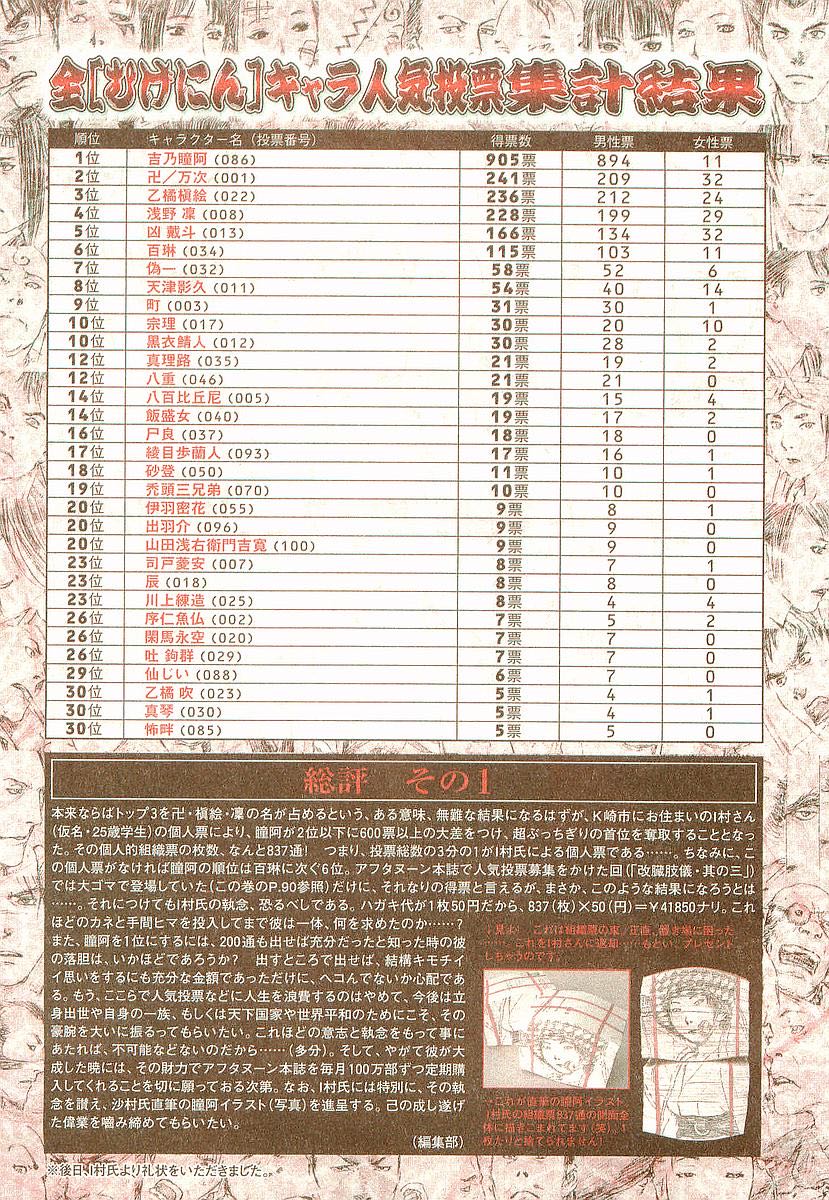 全[むげにん]キャラ人気投票集計結果
順位 キャラクター名（投票番号） 得票数 男性票 女性票
1位 吉乃瞳阿（086） 905票 894 11
2位 卍／万次（001） 241票 209 32
3位 乙橘槇絵（022） 236票 212 24
4位 浅野 凜（008） 228票 199 29
5位 凶 戴斗（013） 166票 134 32
6位 百琳（034） 115票 103 11
7位 偽一（032） 58票 52 6
8位 天津影久（011） 54票 40 14
9位 町（003） 31票 30 1
10位 宗理（017） 30票 20 10
10位 黒衣鯖人（012） 30票 28 2
12位 真理路（035） 21票 19 2
12位 八重（046） 21票 21 0
14位 八百比丘尼（005） 19票 15 4
14位 飯盛女（040） 19票 17 2
16位 尸良（037） 18票 18 0
17位 綾目歩蘭人（093） 17票 16 1
18位 砂登（050） 11票 10 1
19位 禿頭三兄弟（070） 10票 10 0
20位 伊羽密花（055） 9票 8 1
20位 出羽介（096） 9票 9 0
20位 山田浅右衛門吉寛（100） 9票 9 0
23位 司戸菱安（007） 8票 7 1
23位 辰（018） 8票 8 0
23位 川上練造（025） 8票 4 4
26位 序仁魚仏（002） 7票 5 2
26位 閑馬永空（020） 7票 7 0
26位 吐 鉤群（029） 7票 7 0
29位 仙じい（088） 6票 7 0
30位 乙橘 吹（023） 5票 4 1
30位 真琴（030） 5票 4 1
30位 怖畔（085） 5票 5 0
総評 その1
本来ならばトップ3を卍・槇絵・凜の名が占めるという、ある意味、無難な結果になるはずが、K崎市にお住まいのI村さん
（仮名・25歳学生）の個人票により、瞳阿が2位以下に600票以上の大差をつけ、超ぶっちぎりの首位を奪取することとなっ
た。その個人的組織票の枚数、なんと837通！　つまり、投票総数の3分の1がI村氏による個人票である……。ちなみに、こ
の個人票がなければ瞳阿の順位は百琳に次ぐ6位。アフタヌーン本誌で人気投票募集をかけた回（「改臓肢儀・其の三」）
では大ゴマで登場していた（この巻のP.90参照）だけに、それなりの得票と言えるが、まさか、このような結果になろうとは
……。それにつけてもI村氏の執念、恐るべしである。ハガキ代が1枚50円だから、837（枚）×50（円）＝￥41850ナリ。これ
ほどのカネと手間ヒマを投入してまで彼は一体、何を求めたのか……？
また、瞳阿を1位にするには、200通も出せば充分だったと知った時の
彼の落胆は、いかほどであろうか？　出すところで出せば、結構キモチイ
イ思いをするにも充分な金額であっただけに、ヘコんでないか心配であ
る。もう、ここらで人気投票などに人生を浪費するのはやめて、今後は立
身出世や自身の一族、もしくは天下国家や世界平和のためにこそ、その
豪腕を大いに振るってもらいたい。これほどの意志と執念をもって事に
あたれば、不可能などないのだから……（多分）。そして、やがて彼が大
成した暁には、その財力でアフタヌーン本誌を毎月100万部ずつ定期購
入してくれることを切に願っておる次第。なお、I村氏には特別に、その執
念を讃え、沙村氏直筆の瞳阿イラスト（写真）を進呈する。己の成し遂げ
た偉業を噛み締めてもらいたい。
（編集部）
↓見よ！　これは組織票の束！正直、置き場に困った
……。これをI村さんに返却……もとい、プレゼント
しちゃうのです。
→これが直筆の瞳阿イラスト。
I村氏の組織票837通の側面全
体に描きこまれてます（笑）。1
枚たりと捨てられません！
※後日、I村氏より礼状をいただきました。